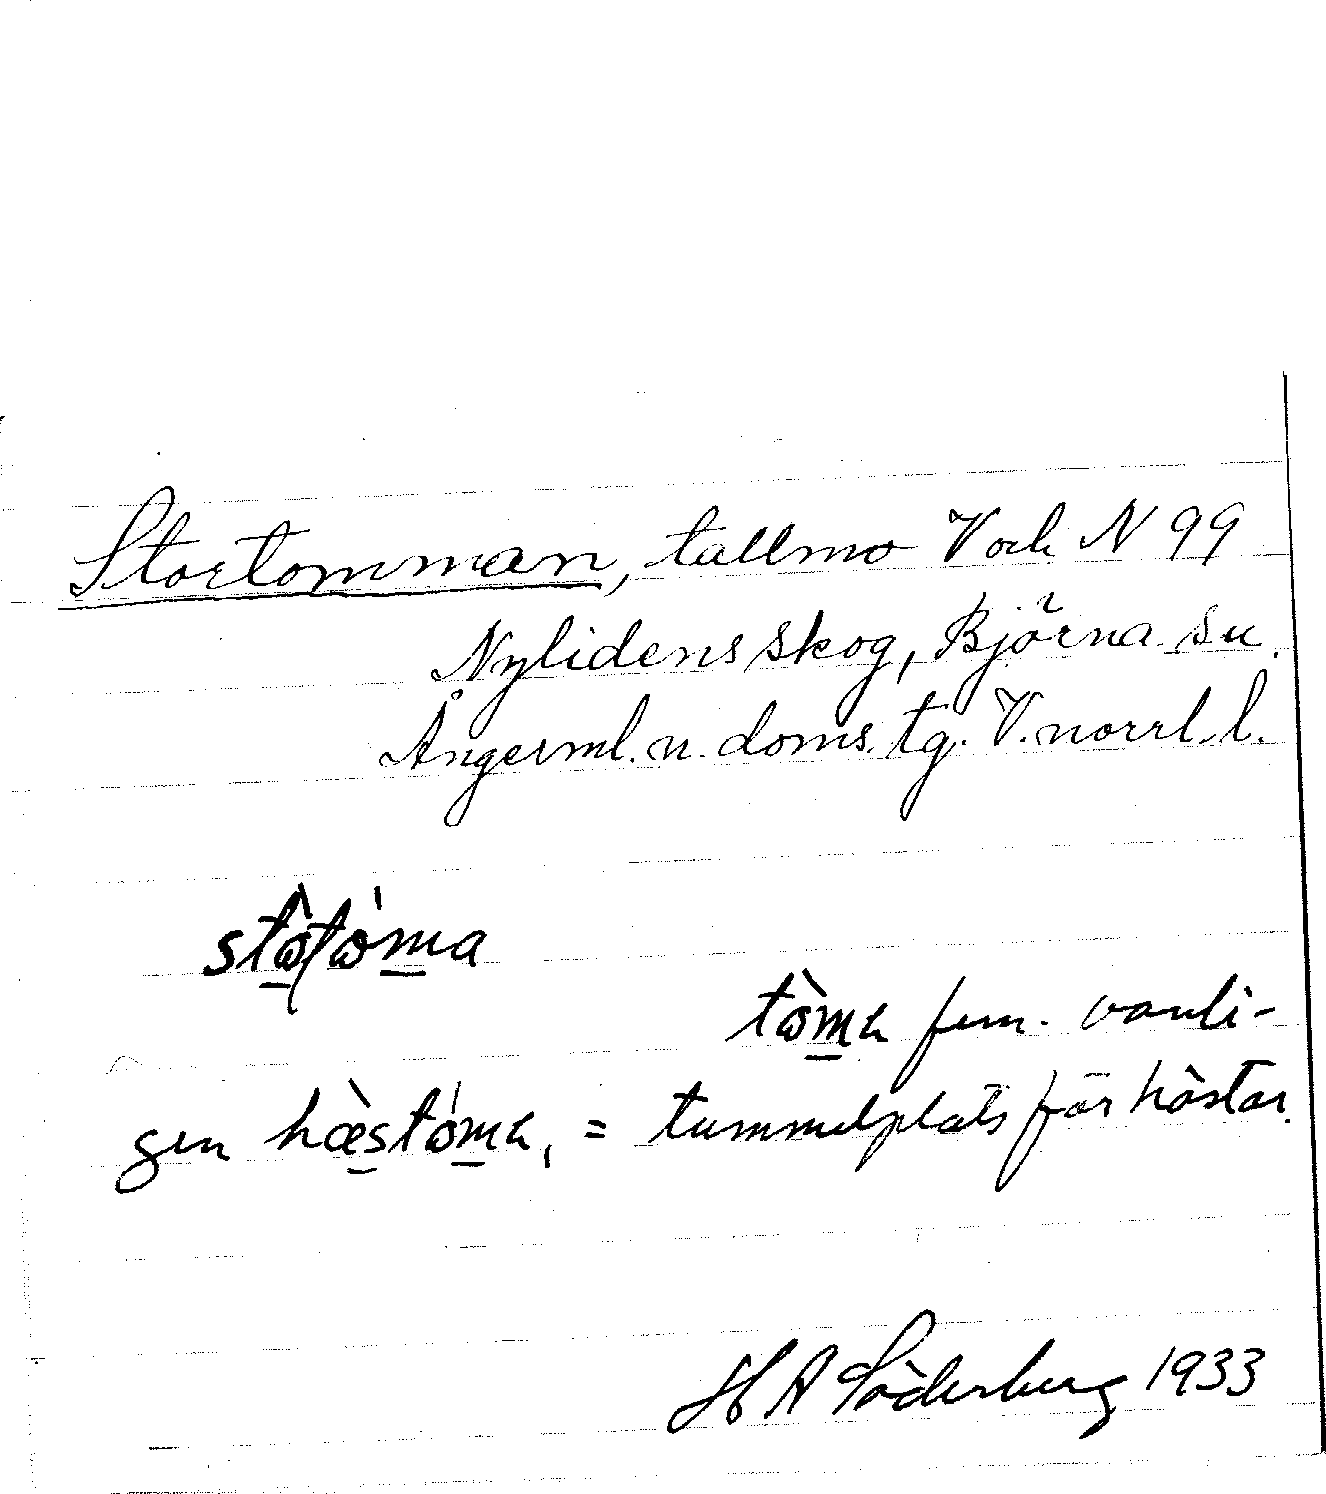 Stortomman, tallmo V och N 99
Nylidens skog, Björna su.
Ångerml. n. doms. tg. V.norrl. l.
tòma fem. vanli-
gen hæ̀stóma, = tummelplats för hästar.
H A Söderberg 1933